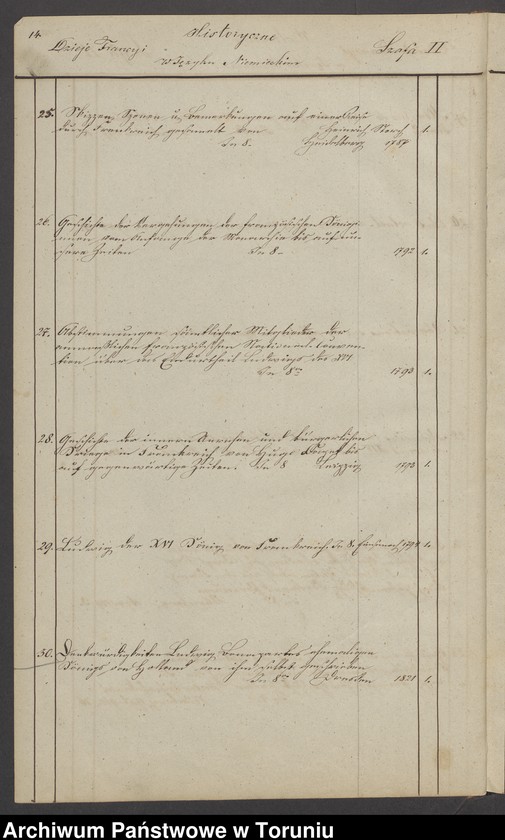 14. Historyczne
Dzieje Francyi Szafa II
w Języku Niemieckim
25. Skizzen, Szenen u. Bemerkungen auf einer Reise
durch Frankreich gesammelt von Heinrich Storch 1.
In 8- Heidelberg 1787
26. Geschichte der Vergehungen der französischen Königi-
nnen vom Anfange der Monarchie bis auf un-
sere Zeiten In 8- 1792 1.
27. Abstimmungen sämtlicher Mitglieder der
französischen National-Conven-
tion über das Endurtheil Ludwigs des XVI
In 8vo 1793 1.
28. Geschichte der innern Unruhen und bürgerlichen
Kriege in Frankreich von Hugo Capet bis
auf gegenwärtige Zeiten. In 8 Leipzig 1793 1.
29. Ludwig der XVI König von Frankreich. In 8. 1793 1.
30. Denkwürdigkeiten Ludwig Bonapartes ehemaligen
Königs von Holland von ihm selbst geschrieben
In 8vo Dresden 1821 1.
Archiwum Państwowe w Toruniu